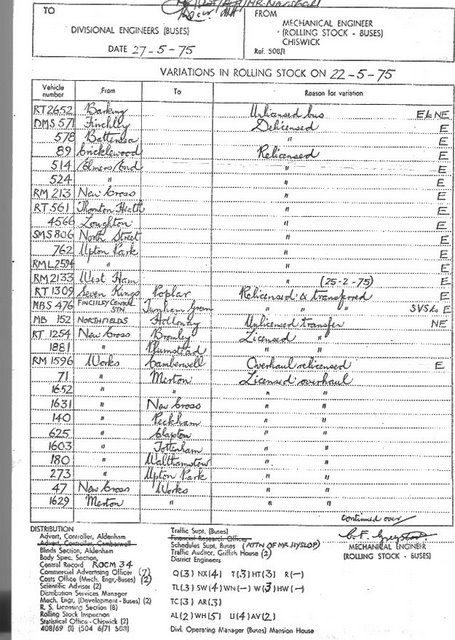 MR Marshall
TO
FROM
DIVISIONAL ENGINEERS (BUSES)
MECHANICAL ENGINEER
(ROLLING STOCK - BUSES)
CHISWICK
DATE 27-5-75
Ref. 508/1
VARIATIONS IN ROLLING STOCK ON 22-5-75
Vehicle number From To Reason for variation
RT 2652 Barking Unlicensed bus E to NE
DMS 571 Finchley Delicensed E
578 Battersea " E
89 Cricklewood Relicensed E
514 Elmers End " E
524 " " E
RM 213 New Cross " E
RT 561 Thornton Heath " E
4566 Loughton " E
SMS 806 North Street " E
762 Upton Park " E
RML 2594 " " E
RM 2133 West Ham " (25-2-75) E
RT 1309 Seven Kings Poplar Relicensed & transferred E
MBS 476 FINCHLEY CENTRAL STN Turnham Green " " " SVS to E
MB 152 NORTHFIELDS Holloway Unlicensed transfer NE
RT 1254 New Cross Bromley Licensed "
1881 " Plumstead " "
RM 1596 Works Camberwell Overhaul relicensed E
71 " Merton Licensed overhaul
1652 " " " "
1631 " New Cross " "
140 " Peckham " "
625 " Clapton " "
1603 " Tottenham " "
180 " Walthamstow " "
273 " Upton Park " "
47 New Cross Works " "
1629 Merton " " "
continued over
MECHANICAL ENGINEER
(ROLLING STOCK - BUSES)
DISTRIBUTION
Advert. Controller, Aldenham
Advert. Controller, Camberwell
Blinds Section, Aldenham
Body Spec. Section,
Central Record ROOM 34
Commercial Advertising Officer (7)
Costs Office (Mech. Engr, Buses) (2)
Scientific Adviser (2)
Distribution Services Manager
Mech. Engr. (Buses) (2)
R. S. Licensing Section (8)
Rolling Stock Inspection
Statistical Office - Chiswick (2)
408/69 (1) (504 6/71 SCS)
Traffic Supt. (Buses)
Financial Research Officer
Schedules Supt. (Buses) (ATTN OF MR HYSLOP)
Traffic Auditor, Griffith House (2)
District Engineers
Q(3) NX(4) T(3) HT(3) R(-)
TL(3) SW(4) WN(-) W(3) HW(-)
TC(3) AR(3)
AL(2) WH(5) U(4) AV(2)
Divl. Operating Manager (Buses) Mansion House